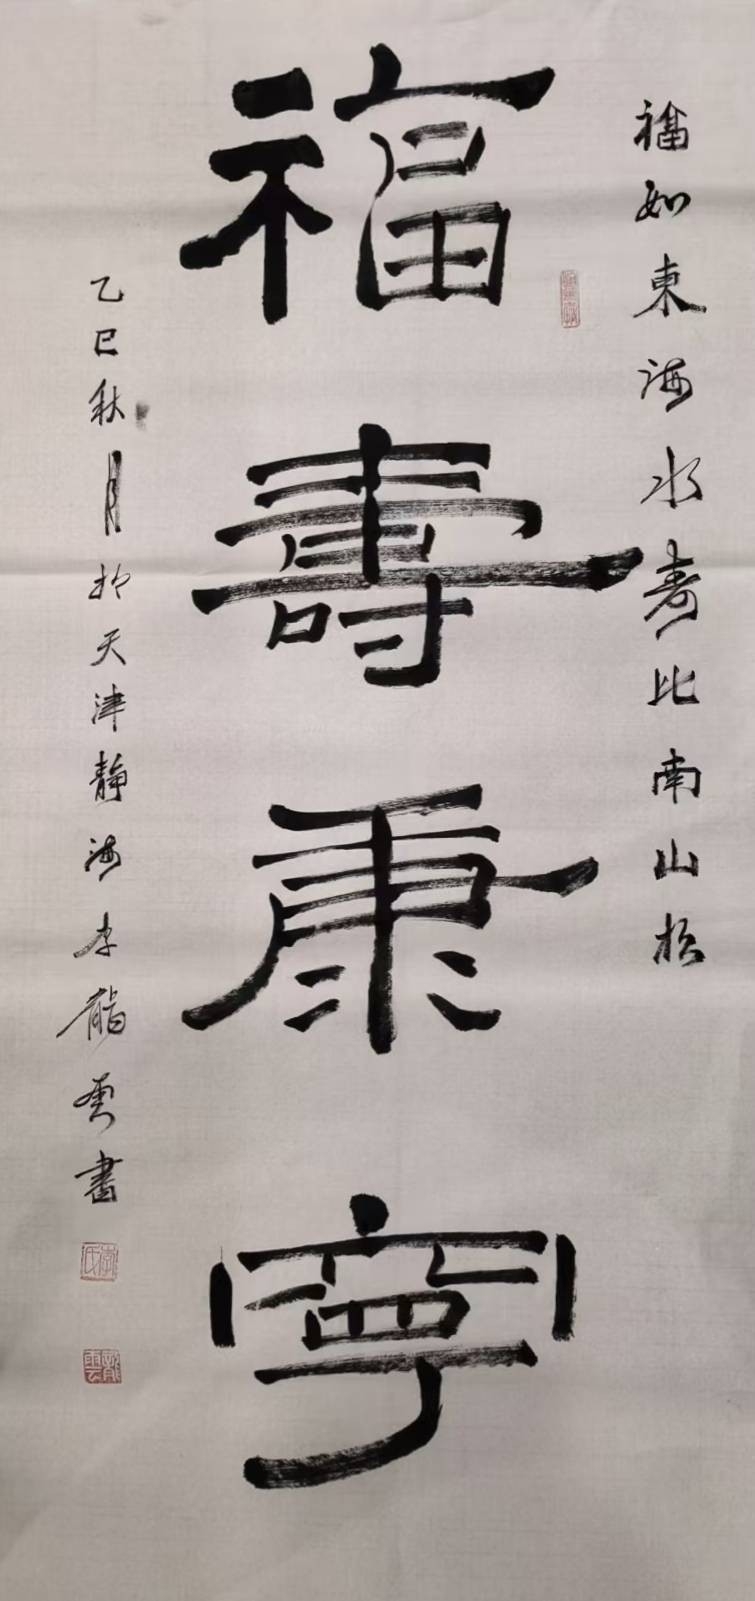 福如東海水壽比南山松
福壽康寧
乙巳秋月於天津靜海李龍雲書